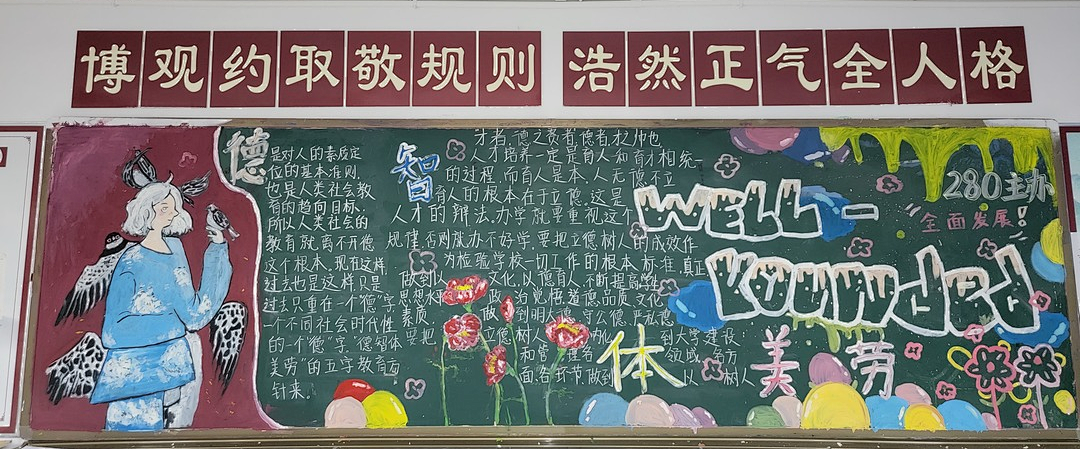 博观约取敬规则 浩然正气全人格
德
是对人的素质定
位的基本准则
也是人类社会教
育的趋向目标
所以人类社会的
教育就离不开德
这个根本。现在这样
过去也是这样只是
过去只重在一个"德"字
一个不同社会时代性
的一个"德"字。"德智体
美劳"的五字教育方
针来。
智
才者,德之资者,德者,才之帅也
人才培养一定是育人和育才相统一
的过程,而育人是本,人无德不立
育人的根本在于立德。这是
人才的辩法,办学就要重视这个
规律,否则就办不好学,要把立德树人的成效作
为检验学校一切工作的根本标准,真正
做到以 文化,以德育人,不断提高学生
思想水 政治觉悟道德品质文化
素质 做到明大 守公德,严私德
要把 立德树人 化 到大学建设
和管理各 领域各方
面各环节,做到 以 树人
体
美
劳
WELL-
Rounded
280主办
"全面发展!